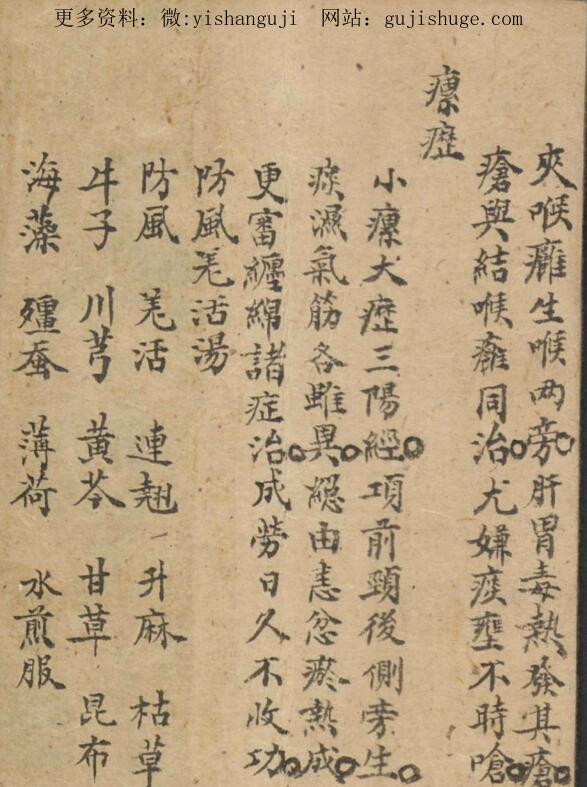 更多资料：微:yishanguji 网站：gujishuge.com
夾喉癰生喉两旁肝胃毒熱發其瘡
瘡與結喉癰同治尤嫌痰壅不時嗆
瘰癧
小瘰大癧三陽經項前頸後側旁生
痰濕氣筋名雖異總由恚忿瘀熱成
更審纏綿諸症治成勞日久不收功
防風羌活湯
防風 羌活 連翹 升麻 枯草
牛子 川芎 黄芩 甘草 昆布
海藻 殭蚕 薄荷 水煎服